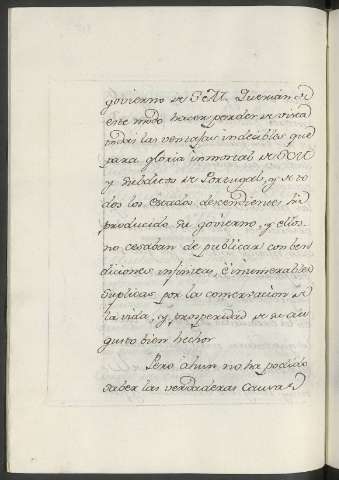 govierno de S. M. Querian de
este modo hacer perder de vista
todas las ventajas indecibles que
para gloria inmortal de
y subditos de Portugal, y de to
dos los estados dependientes
producido su govierno, y ellos
no cesaban de publicar con ben
diciones infinitas, è inumerables
suplicas por la conservacion de
la vida, y prosperidad de su au
gusto bien hechor
Pero ahun no ha podido
saber las verdaderas causas